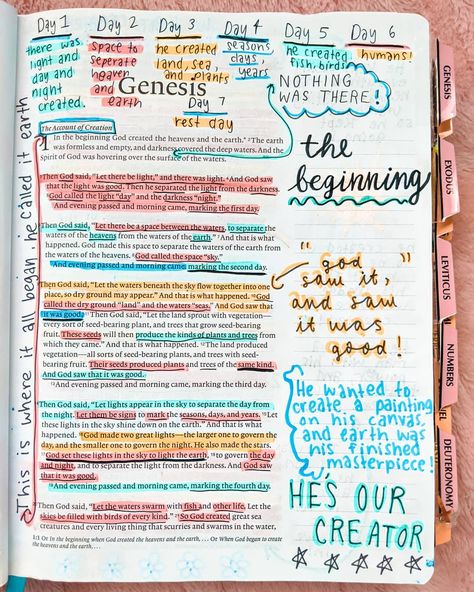 Day 1 Day 2 Day 3 Day 4 Day 5 Day 6
there was
light and
day and
night
created.
space to
seperate
heaven
and
earth
he created
land, sea,
and plants
seasons,
days,
years
he created
fish, birds
humans!
Genesis
Day 7
rest day
NOTHING
WAS THERE!
This is where it all began. he called it earth
The Account of Creation
1 In the beginning God created the heavens and the earth.* ²The earth
was formless and empty, and darkness covered the deep waters. And the
spirit of God was hovering over the surface of the waters.
Then God said, "Let there be light," and there was light. ⁴And God saw
that the light was good. Then he separated the light from the darkness.
⁵God called the light "day" and the darkness "night."
And evening passed and morning came, marking the first day.
Then God said, "Let there be a space between the waters, to separate the
waters of the heavens from the waters of the earth." ⁷And that is what
happened. God made this space to separate the waters of the earth from the
waters of the heavens. ⁸God called the space "sky."
And evening passed and morning came, marking the second day.
Then God said, "Let the waters beneath the sky flow together into one
place, so dry ground may appear." And that is what happened. ¹⁰God
called the dry ground "land" and the waters "seas." And God saw that
it was good. ¹¹Then God said, "Let the land sprout with vegetation—
every sort of seed-bearing plant, and trees that grow seed-bearing
fruit. These seeds will then produce the kinds of plants and trees from
which they came." And that is what happened. ¹²The land produced
vegetation—all sorts of seed-bearing plants, and trees with seed-
bearing fruit. Their seeds produced plants and trees of the same kind.
And God saw that it was good.
¹³And evening passed and morning came, marking the third day.
Then God said, "Let lights appear in the sky to separate the day from
the night. Let them be signs to mark the seasons, days, and years. ¹⁵Let
these lights in the sky shine down on the earth." And that is what
happened. ¹⁶God made two great lights—the larger one to govern the
day, and the smaller one to govern the night. He also made the stars.
¹⁷God set these lights in the sky to light the earth, ¹⁸to govern the day
and night, and to separate the light from the darkness. And God saw
that it was good.
¹⁹And evening passed and morning came, marking the fourth day.
Then God said, "Let the waters swarm with fish and other life. Let the
skies be filled with birds of every kind." ²¹So God created great sea
creatures and every living thing that scurries and swarms in the water,
1:1 Or In the beginning when God created the heavens and the earth, . . . Or When God began to create
the heavens and the earth, . . .
the
beginning
"god
saw it,
and saw
it was
good!"
He wanted to
create a painting
on his canvas,
and earth was
his finished
masterpiece!
HE'S OUR
CREATOR
GENESIS
EXODUS
LEVITICUS
NUMBERS
DEUTERONOMY